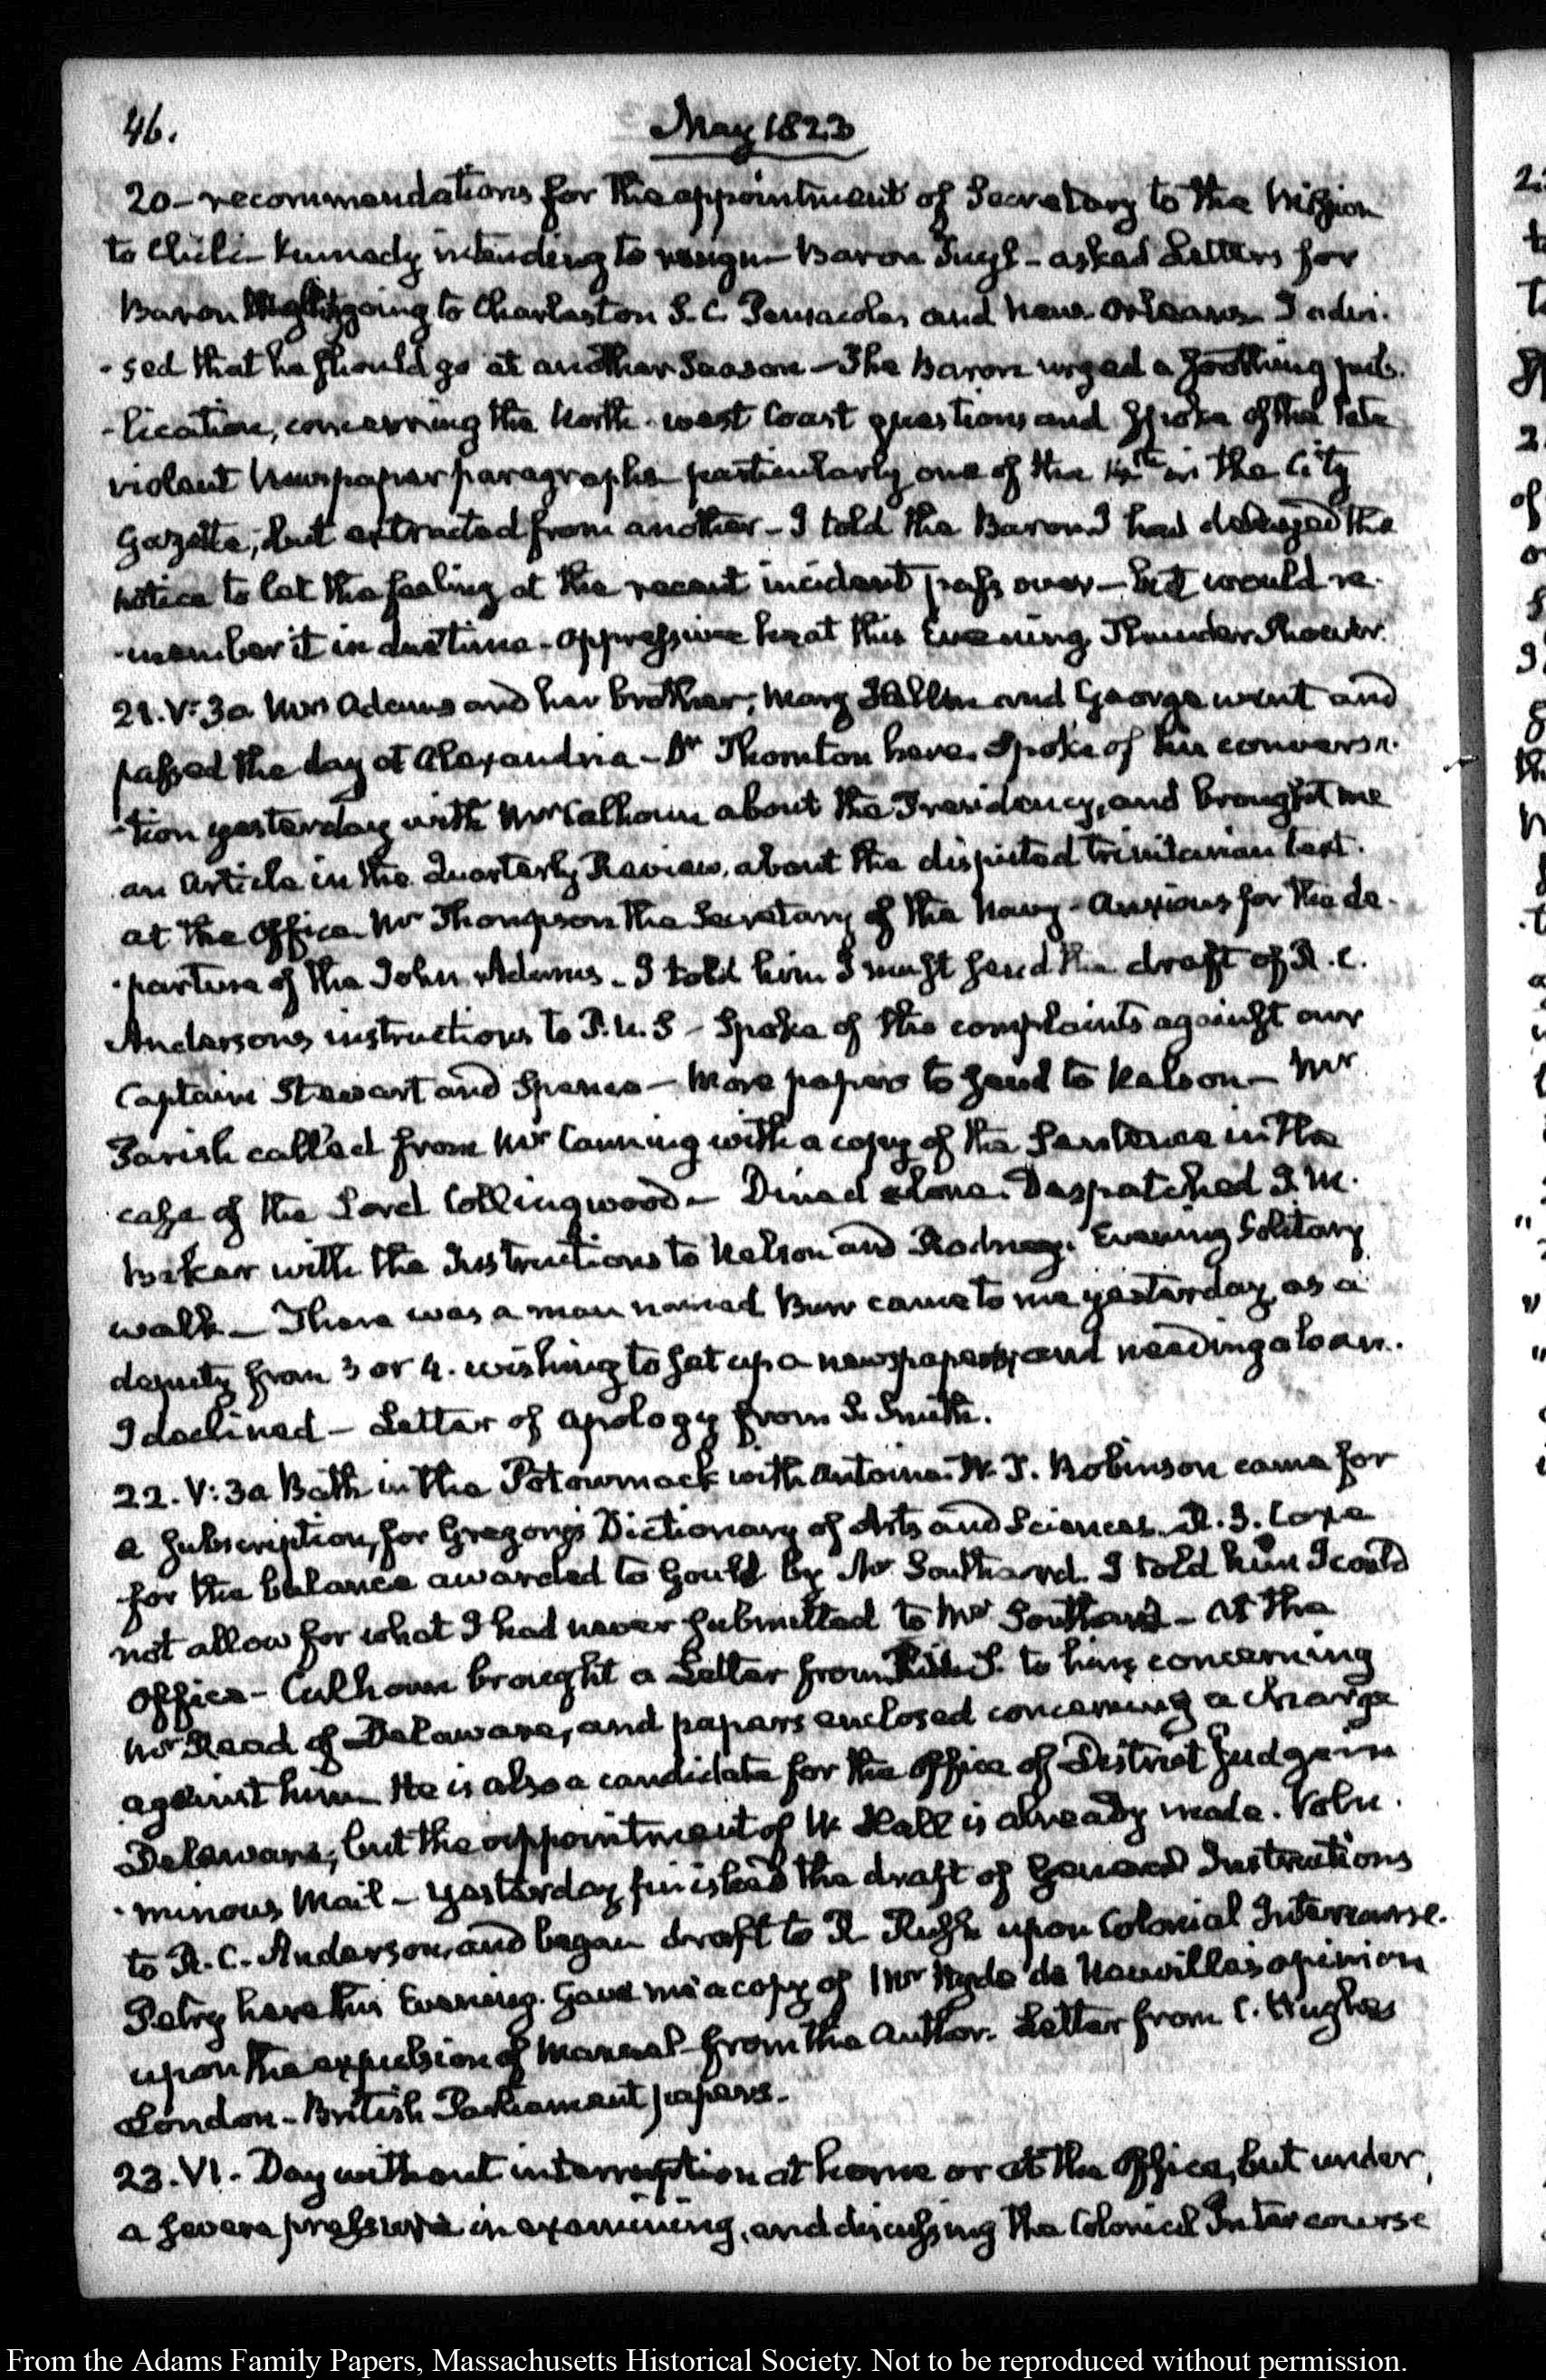 46.
May 1823
20 - recommendations for the appointment of Secretary to the Mission
to Chili - Kennedy intending to resign - Baron Tuyl - asked Letters for
Baron going to Charleston S. C. Pensacola and New-Orleans. I advi-
-sed that he should go at another Season - The Baron urged a soothing pub-
-lication, concerning the North-west Coast questions and spoke of the late
violent Newspaper paragraphs - particularly one of the 14th in the City
Gazette; but extracted from another - I told the Baron I had delayed the
notice to let the feeling at the recent incident pass over - but would re-
-member it in due time - Oppressive heat this Evening Thunder Shower.
21. V: 30. Mrs Adams and her brother; Mary Hellen and George went and
passed the day at Alexandria - Dr Thornton here. Spoke of his conversa-
-tion yesterday with Mr Calhoun about the Presidency, and brought me
an Article in the Quarterly Review, about the disputed trinitarian text.
at the Office Mr Thompson the Secretary of the Navy - Anxious for the de-
-parture of the John Adams. I told him I must send the draft of R. C.
Anderson's instructions to P. U. S - Spoke of the complaints against our
Captains Stewart and Spence - More papers to send to Nelson - Mr
Parish called from Mr Canning with a copy of the Sentence in the
case of the Lord Collingwood - Dined alone. Despatched J. M.
Baker with the Instructions to Nelson and Rodney. Evening Solitary
walk - There was a man named Burr came to me yesterday, as a
deputy from 3 or 4. wishing to set up a newspaper, and needing a loan.
I declined - Letter of apology from S. Smith.
22. V: 30 Bath in the Potowmack with Antoine. W. T. Robinson came for
a subscription, for Gregory's Dictionary of Arts and Sciences. R. S. Coxe
for the balance awarded to Gould by Mr Southard. I told him I could
not allow for what I had never submitted to Mr Southard - At the
Office - Calhoun brought a Letter from to him, concerning
Mr Read of Delaware, and papers enclosed concerning a charge
against him - He is also a candidate for the office of District Judge in
Delaware; but the appointment of W. Hall is already made. Volu-
-minous Mail - Yesterday finished the draft of General Instructions
to R. C. Anderson, and began draft to R Rush upon Colonial Intercourse.
Petry here this Evening. Gave me a copy of Mr Hyde de Neuville's opinion
upon the expulsion of Manuel - from the Author. Letter from C. Hughes
London - British Parliament papers.
23. VI. Day without interruption at home or at the Office, but under
a severe pressure in examining, and discussing the Colonial Intercourse
From the Adams Family Papers, Massachusetts Historical Society. Not to be reproduced without permission.